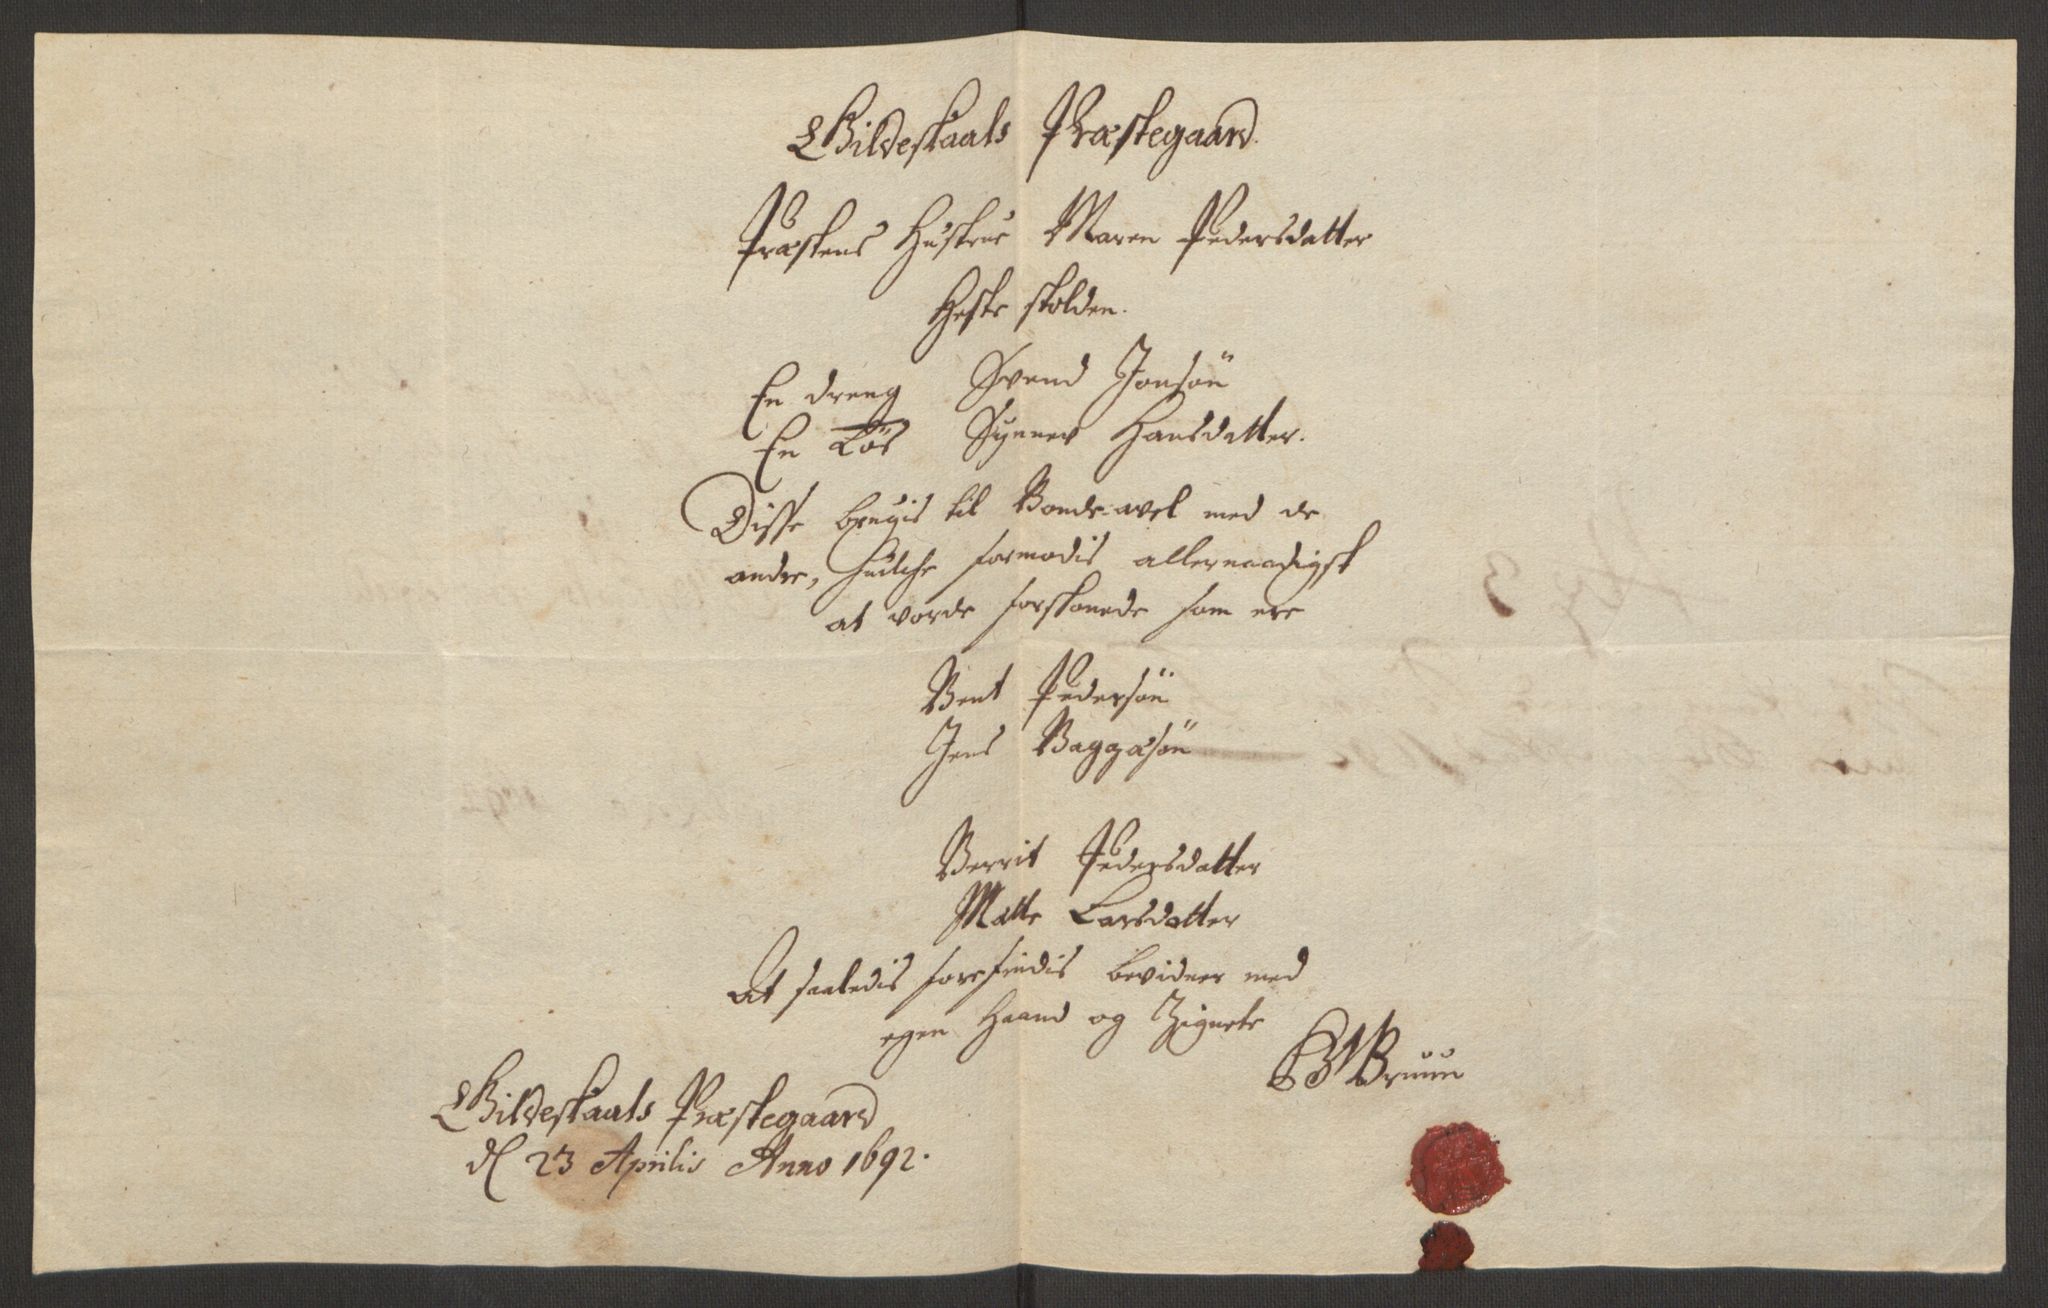 Gildeskaals Præstegaard.
Præstens Hustrue Maren Pedersdatter
Hefte skolden.
En dreng Svend Jonsøn
En Tøs Synnev Hansdatter.
Disse brugis til Bonde-avel med de
andre, huilche formodis allernaadigst
at vorde forskonede som ere
Bent Pedersøn
Jens Baggæsøn
Berrit Pedersdatter
Mætte Larsdatter
At saaledis forefindis bevidner med
egen Haand og Zignete
Bruun
Gildeskaals Præstegaard
d 23 Aprilis Anno 1692.